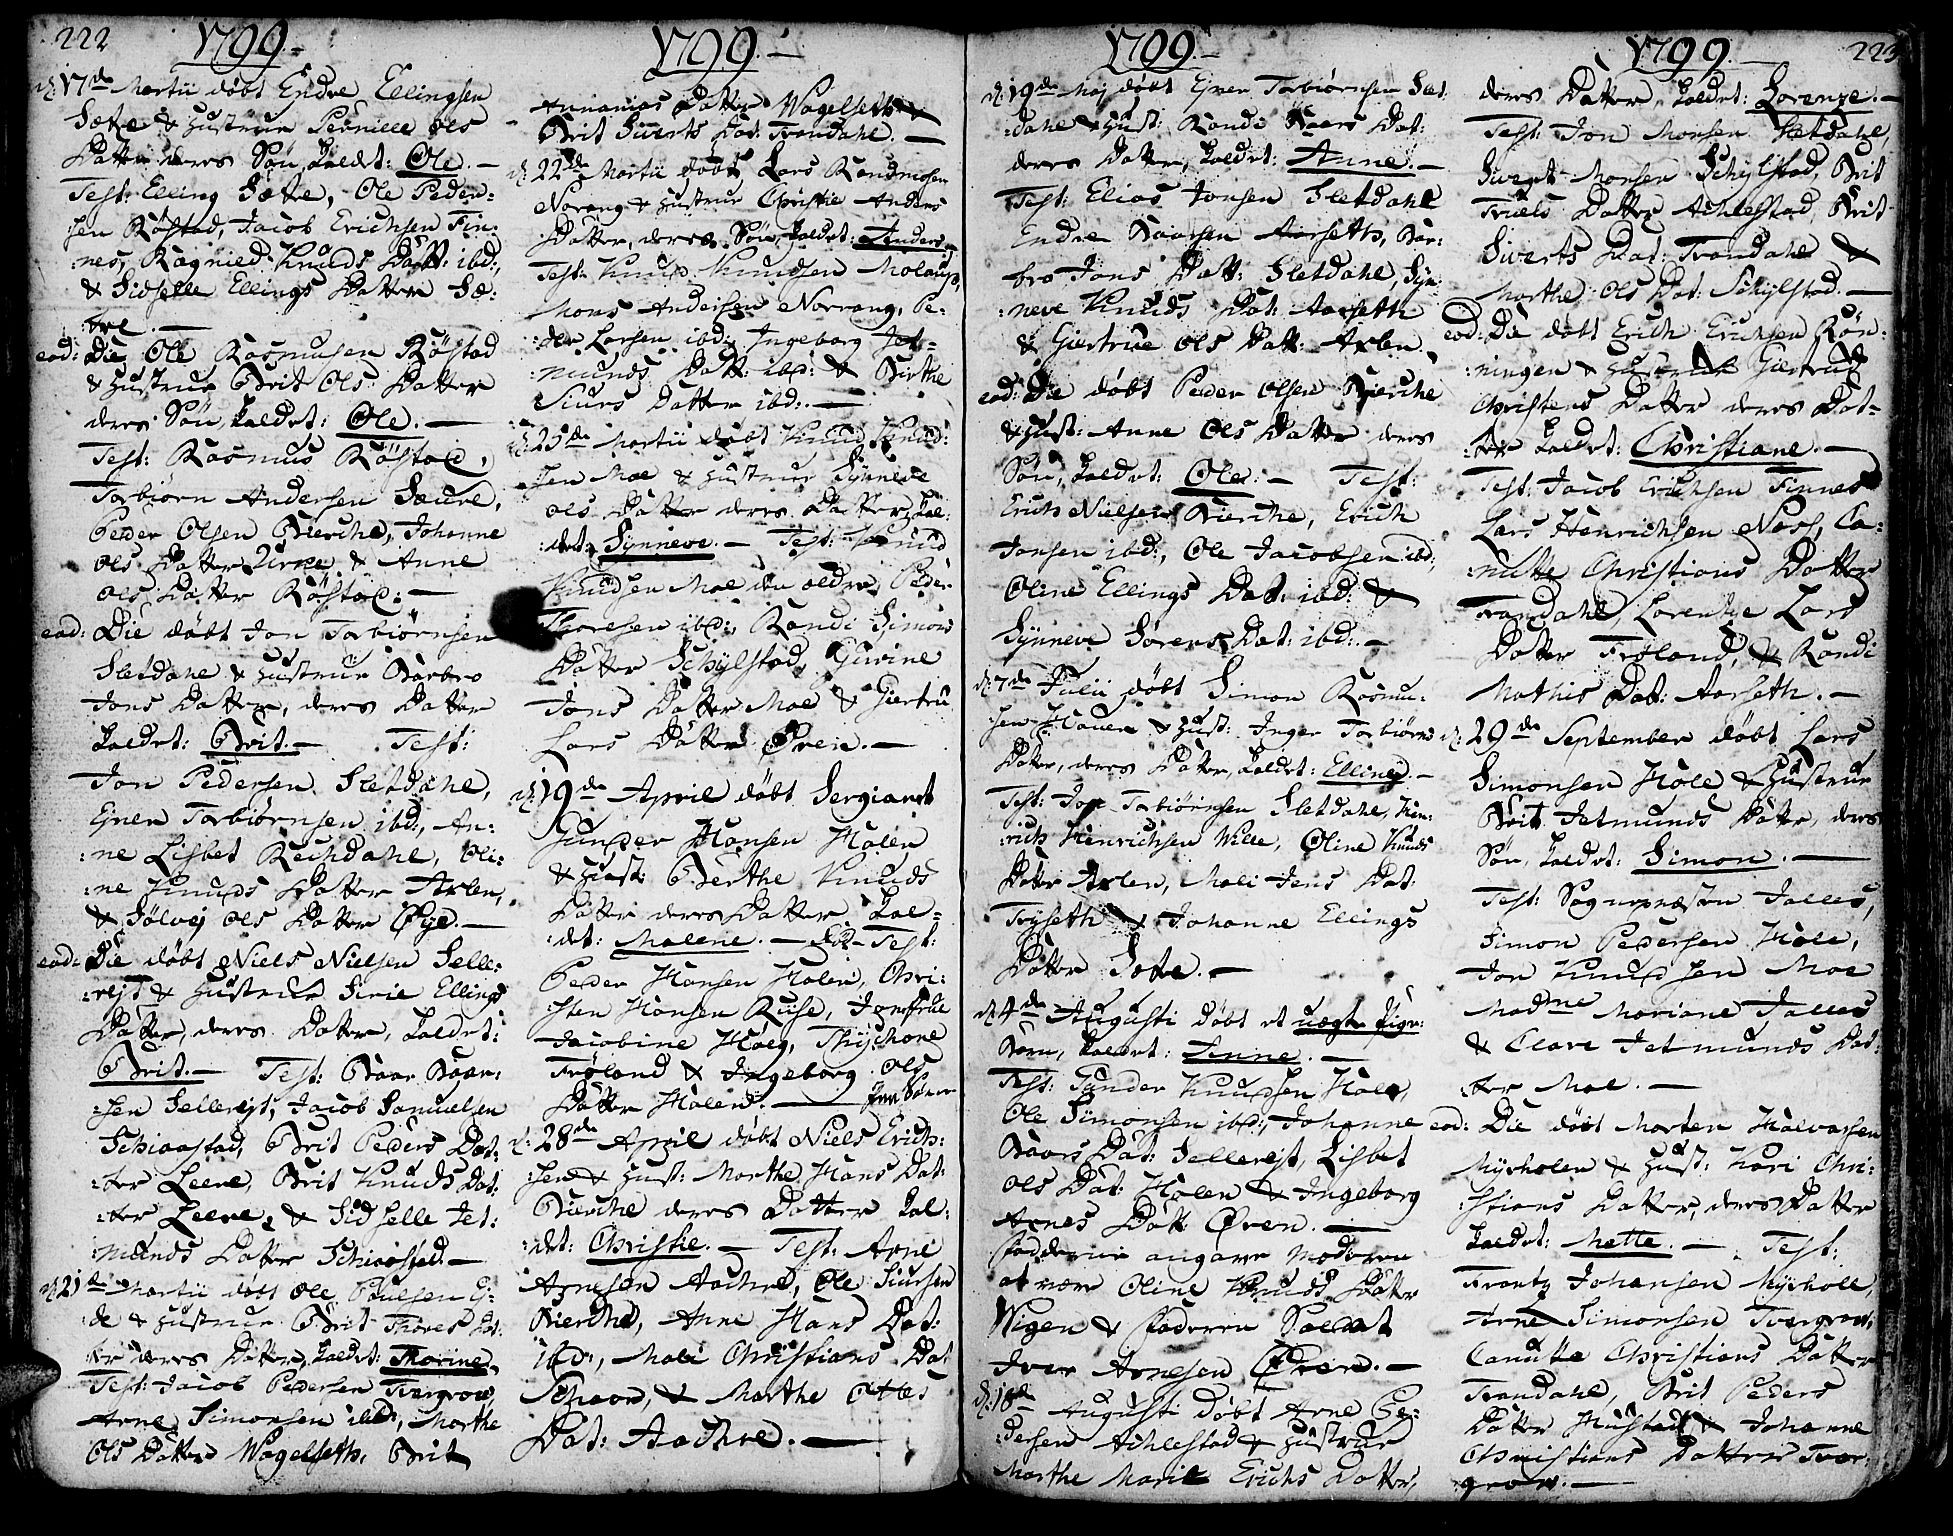 222 1799.
d: 17de Martii døbt Endre Ellingsen
Sætre & Hustrue Pernille Ols
Datter deres Søn kaldet: Ole. —
Test: Elling Sætre, Ole Peder-
sen Røstad, Jacob Erichsen Fin-
:nes, Ragnild Knuds Datt: ibd:,
& Sidselle Ellings Datter Sæ:
tre. —
eod: Die Ole Rasmusen Røstad
& Hustrue Brit Ols Datter
deres Søn kaldet: Ole. —
Test: Rasmus Røstad,
Torbiørn Andersen Sæure,
Peder Olsen Bierche, Johanne
Ols Datter Urne & Anne
Ols Datter Røstad: —
eod: Die døbt Jon Torbiørnsen
Sletdahl & Hustrue Barbro
Jons Datter, deres Datter
kaldet: Brit. — Test:
Jon Pedersen Sletdahl,
Ejner Torbiørnsen ibd:, An-
:ne Lisbet Rechdahl, Oli:
:ne Knuds Datter Axlen,
& Sølvej Ols Datter Øye. —
eod: Die døbt Niels Nielsen Selle:
:rejt & Hustrue Sirie Ellings
Datter, deres Datter, kaldet:
Brit. — Test: Baar Baar-
:sen Sellerejt, Jacob Samuelsen
Schiaastad, Brit Peders Dat:
:ter Leere, Brit Knuds Dat:
:ter Leere, & Sidselle Jet:
:munds Datter Schiaastad. —
d: 21de Martii døbt Ole Poulsen Ej-
de & Hustrue Brit Thores Dat:
:ter deres Datter, kaldet: Thorine.
Test: Jacob Pedersen Tvergrov,
Arne Simonsen ibd:, Marthe
Ols Datter Wagelseth, Brit
1799. —
Annanias Datter Wagelseth &
Brit Siverts Dat: Trandahl. —
d: 22de Martii døbt Lars Randmosen
Norang & Hustrue Christie Anders
Datter, deres Søn, kaldet: Anders.
Test: Knud Knudsen Molaup,
Mons Andersen Norrang, Pe-
der Larsen ibd:, Ingeborg Jet-
:munds Datt: ibd: & Birthe
Siurs Datter ibd:. —
d: 25de Martii døbt Knud Knud:
:sen Moe & Hustrue Synneve
Ols Datter deres Datter, kal:
:det: Synneve. — Test: Knud
Knudsen Moe den ældre, Peder
Thoresen ibd:, Randi Simons
Datter Schylstad, Gurine
Jons Datter Moe & Giertru
Lars Datter Øren. —
d: 19de April døbt Sergiant
Gunder Hansen Holen
& Hust: Berthe Knuds
Datter deres Datter kal-
:det: Malene. — Test:
Peder Hansen Holen, Chri-
sten Hansen Ruse, Jomfrue
Jacobine Høeg, Thychone
Frøland & Ingeborg Ols
Datter Holen. —
d: 28de April døbt Niels Erich:
:sen & Hust: Marthe Hans Dat:
Bierche deres Datter kal-
:det: Christie. — Test: Arne
Arnesen Aachre, Ole Siursen
Bierche, Anne Hans Dat:
ibd:, Mali Christians Dat
Schaar, & Marthe Ottes
Dat: Aachre. —
1799. —
d: 19de Maj døbt Ejner Torbiørnsen Slet:
:dahl & Hust: Randi Baars Dat:
deres Datter, kaldet: Anne. —
Test: Elias Jonsen Sletdahl
Endre Baarsen Aarseth, Bar:
bro Jons Datt: Sletdahl, Syn:
:neve Knuds Dat: Aarseth
& Giertrue Ols Datt: Axlen.
eod: Die døbt Peder Olsen Bierche
& Hust: Anne Ols Datter deres
Søn, kaldet: Ole. — Test:
Erich Nielsen Bierche, Erich
Jonsen ibd:, Ole Jacobsen ibd:,
Oline Ellings Dat: ibd: &
Synneve Sørens Dat: ibd:. —
d: 7de Julii døbt Simon Rasmu-
:sen Hauen & Hust: Inger Torbiørns
Datter, deres Datter, kaldet: Elline. —
Test: Jon Torbiørnsen Sletdahl, Hen-
rich Henrichsen Wille, Oline Knuds
Datter Axlen, Mali Jens Dat:
Tryseth & Johanne Ellings
Datter Sætre. —
d: 4de Augusti døbt et uægte Pige-
Barn, kaldet: Anne. —
Test: Gunder Knudsen Hole,
Ole Simonsen ibd:, Johanne
Baars Dat: Sellerejt, Lisbet
Ols Dat: Holen & Ingeborg
Arnes Datt Øren. —
Fadderne angave Moderen
at være Oline Knuds Datter
Wigen & Faderen Soldat
Iver Arnesen Øren. —
d: 18de Augusti døbt Arne Pe-
dersen Achlestad & Hustrue
Marthe Marie Erichs Datter,
1799. — 223
deres Datter, kaldet: Lorenze. —
Test: Jon Monsen Sletdahl,
Sivert Monsen Schylstad, Brit
Truels Datter Achlestad, Brit
Siverts Dat: Trandahl &
Marthe Ols Dat: Schylstad. —
eod: Die døbt Erich Erichsen Røn-
:ningen & Hustrue Giertrud
Christens Datter deres Dat-
:ter kaldet: Christiane. —
Test: Jacob Erichsen Finnes
Lars Henrichsen Nøss, Ca-
:nutte Christians Datter
Trandahl, Lorentze Lars
Datter Frøland, & Randi
Mathis Dat: Aarseth. —
d: 29de September døbt Lars
Simonsen Hole & Hustrue
Brit Jetmunds Datter, deres
Søn, kaldet: Simon. —
Test: Sognepræsten Jalles,
Simon Pedersen Hole,
Jon Knudsen Moe
Madme Mariane Jalles
& Clare Jetmunds Dat:
:ter Moe. —
eod: Die døbt Morten Halvarsen
Myrholen & Hust: Kari Chri-
:stians Datter, deres Datter
kaldet: Mette. — Test:
Frantz Johansen Myrholl,
Arne Simonsen Tvergrov,
Canutte Christians Datter
Trandahl, Brit Peders
Datter Hustad & Johanne
Christians Datter Tver-
grov. —